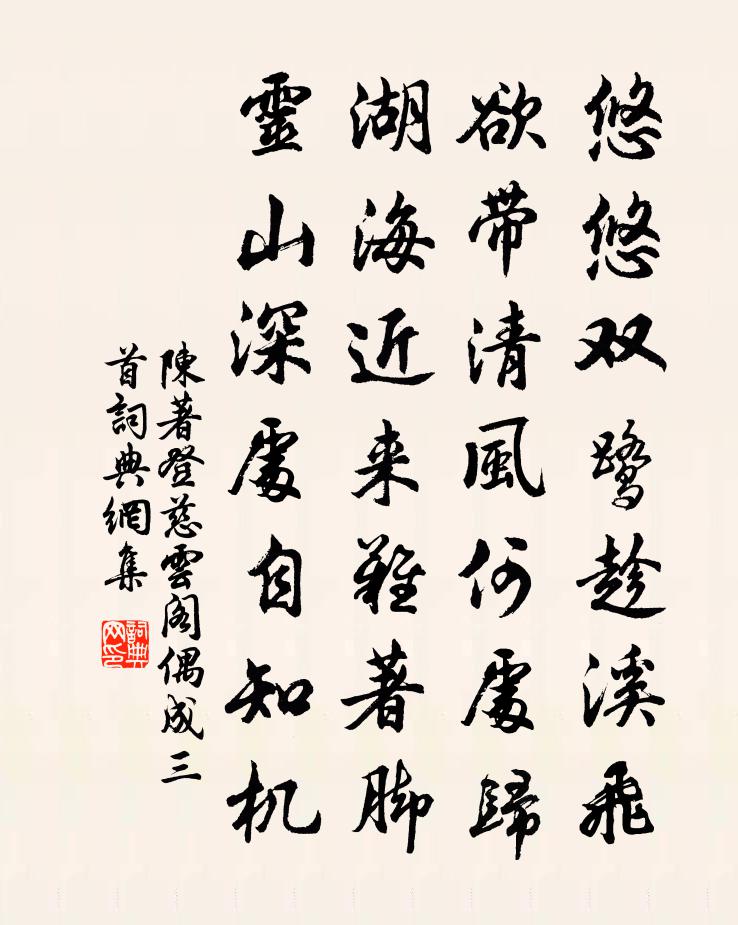 悠悠双鹭趁溪飛
欲带清風何處歸
湖海近来難著脚
靈山深處自知机
陳著登慈雲阁偶成三
首詞典網集
詞典
网印